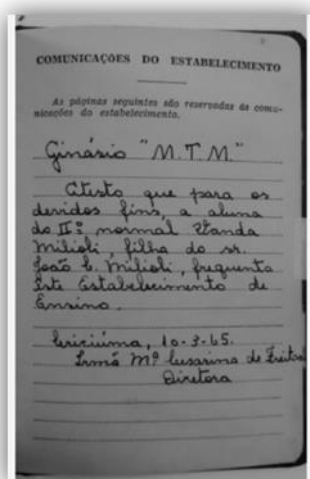 COMUNICAÇÕES DO ESTABELECIMENTO
As páginas seguintes são reservadas às comu-
nicações do estabelecimento.
Ginásio "M.T.M."
Atesto que para os
devidos fins, a aluna
do IIº normal Wanda
Milioli, filha do sr.
João C. Milioli, frequenta
êste Estabelecimento de
Ensino.
Criciúma, 10-3-65.
Irmã Mª Cesarina de Freitas
Diretora